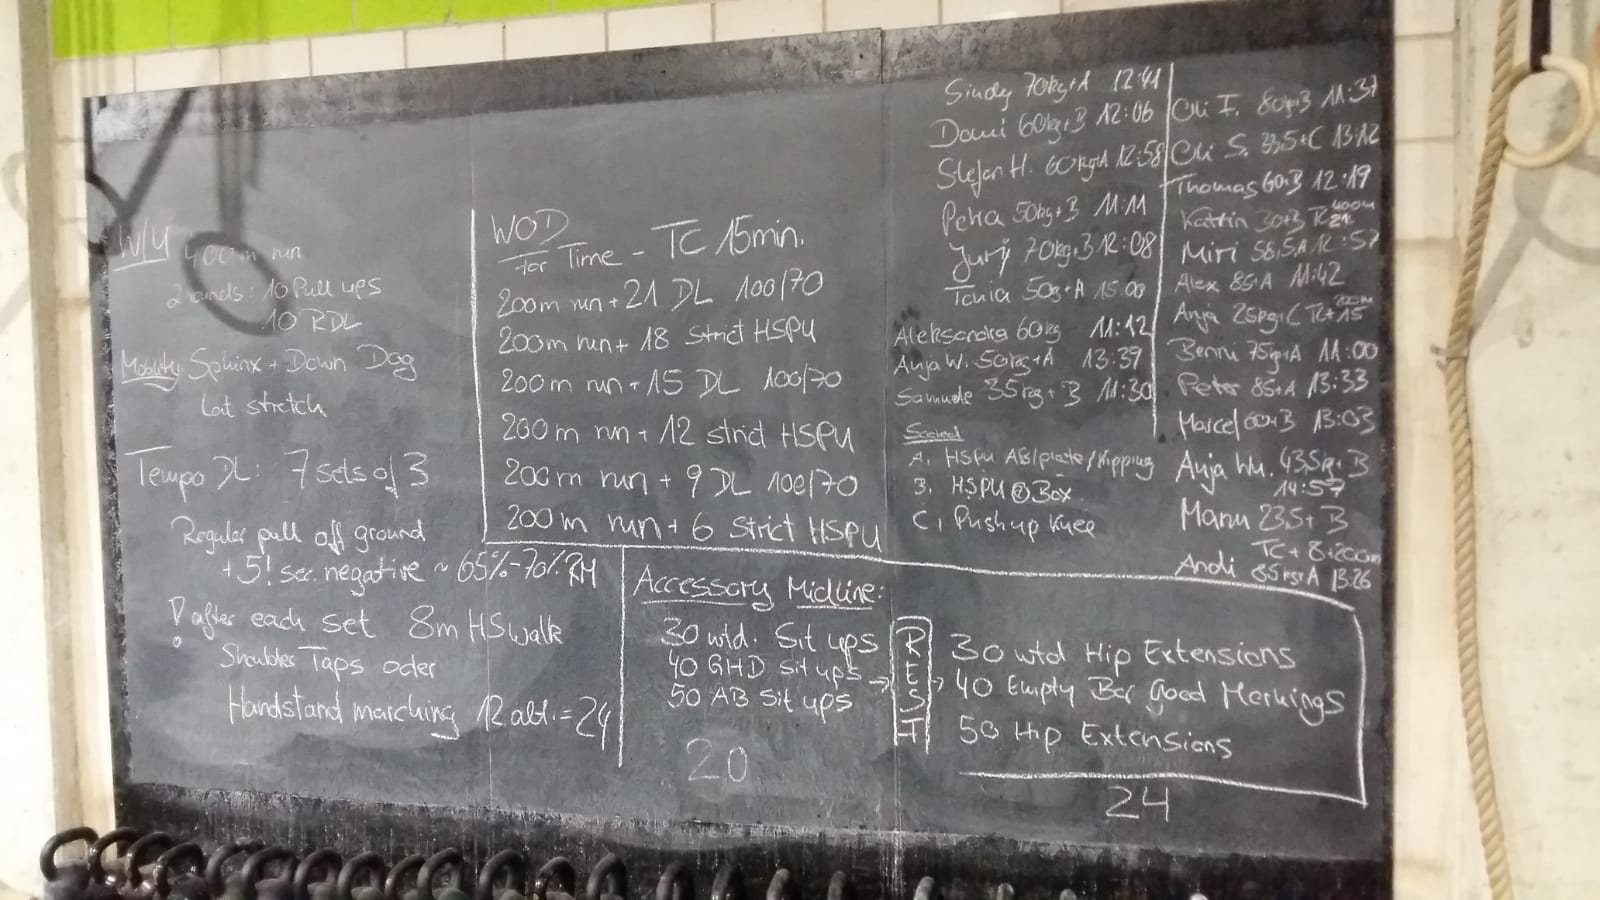 W/U 400m run
2 rounds: 10 Pull ups
10 RDL
Mobility: Sphinx + Down Dog
Lat stretch
Tempo DL: 7 sets of 3
Regular pull off ground
+ 5! sec. negative ~ 65%-70% RM
! after each set 8m HS walk
Shoulder Taps oder
Handstand marching 12 alt. = 24
WOD
for Time - TC 15min.
200m run + 21 DL 100/70
200m run + 18 Strict HSPU
200m run + 15 DL 100/70
200m run + 12 strict HSPU
200m run + 9 DL 100/70
200m run + 6 Strict HSPU
Sindy 70kg+A 12:41
Domi 60kg+B 12:06
Stefan H. 60kg+A 12:58
Petra 50kg+B 11:11
Jurij 70kg+B 12:08
Tania 50g+A 15:00
Aleksandra 60kg 11:12
Anja W. 50kg+A 13:39
Samuele 35kg+B 11:30
Scaled
A. HSPU AB/plate/Kipping
B. HSPU @ Box
C. Push up Knee
Oli I. 80+B 11:37
Oli S. 33,5+C 13:12
Thomas 60+B 12:19
Katrin 30+B 400m
Miri 58,5A 12:57
Alex 85+A 11:42
Anja 25kg+C TC+15 200m
Benni 75kg+A 11:00
Peter 85+A 13:33
Marcel 60+B 13:03
Anja Wu. 43,5kg+B
14:57
Manu 23,5+B
TC+8+200m
Andi 85kg+A 13:26
Accessory Midline:
30 wtd. Sit ups
40 GHD sit ups →
50 AB Sit ups
20
REST
30 wtd Hip Extensions
→ 40 Empty Bar Good Mornings
50 Hip Extensions
24